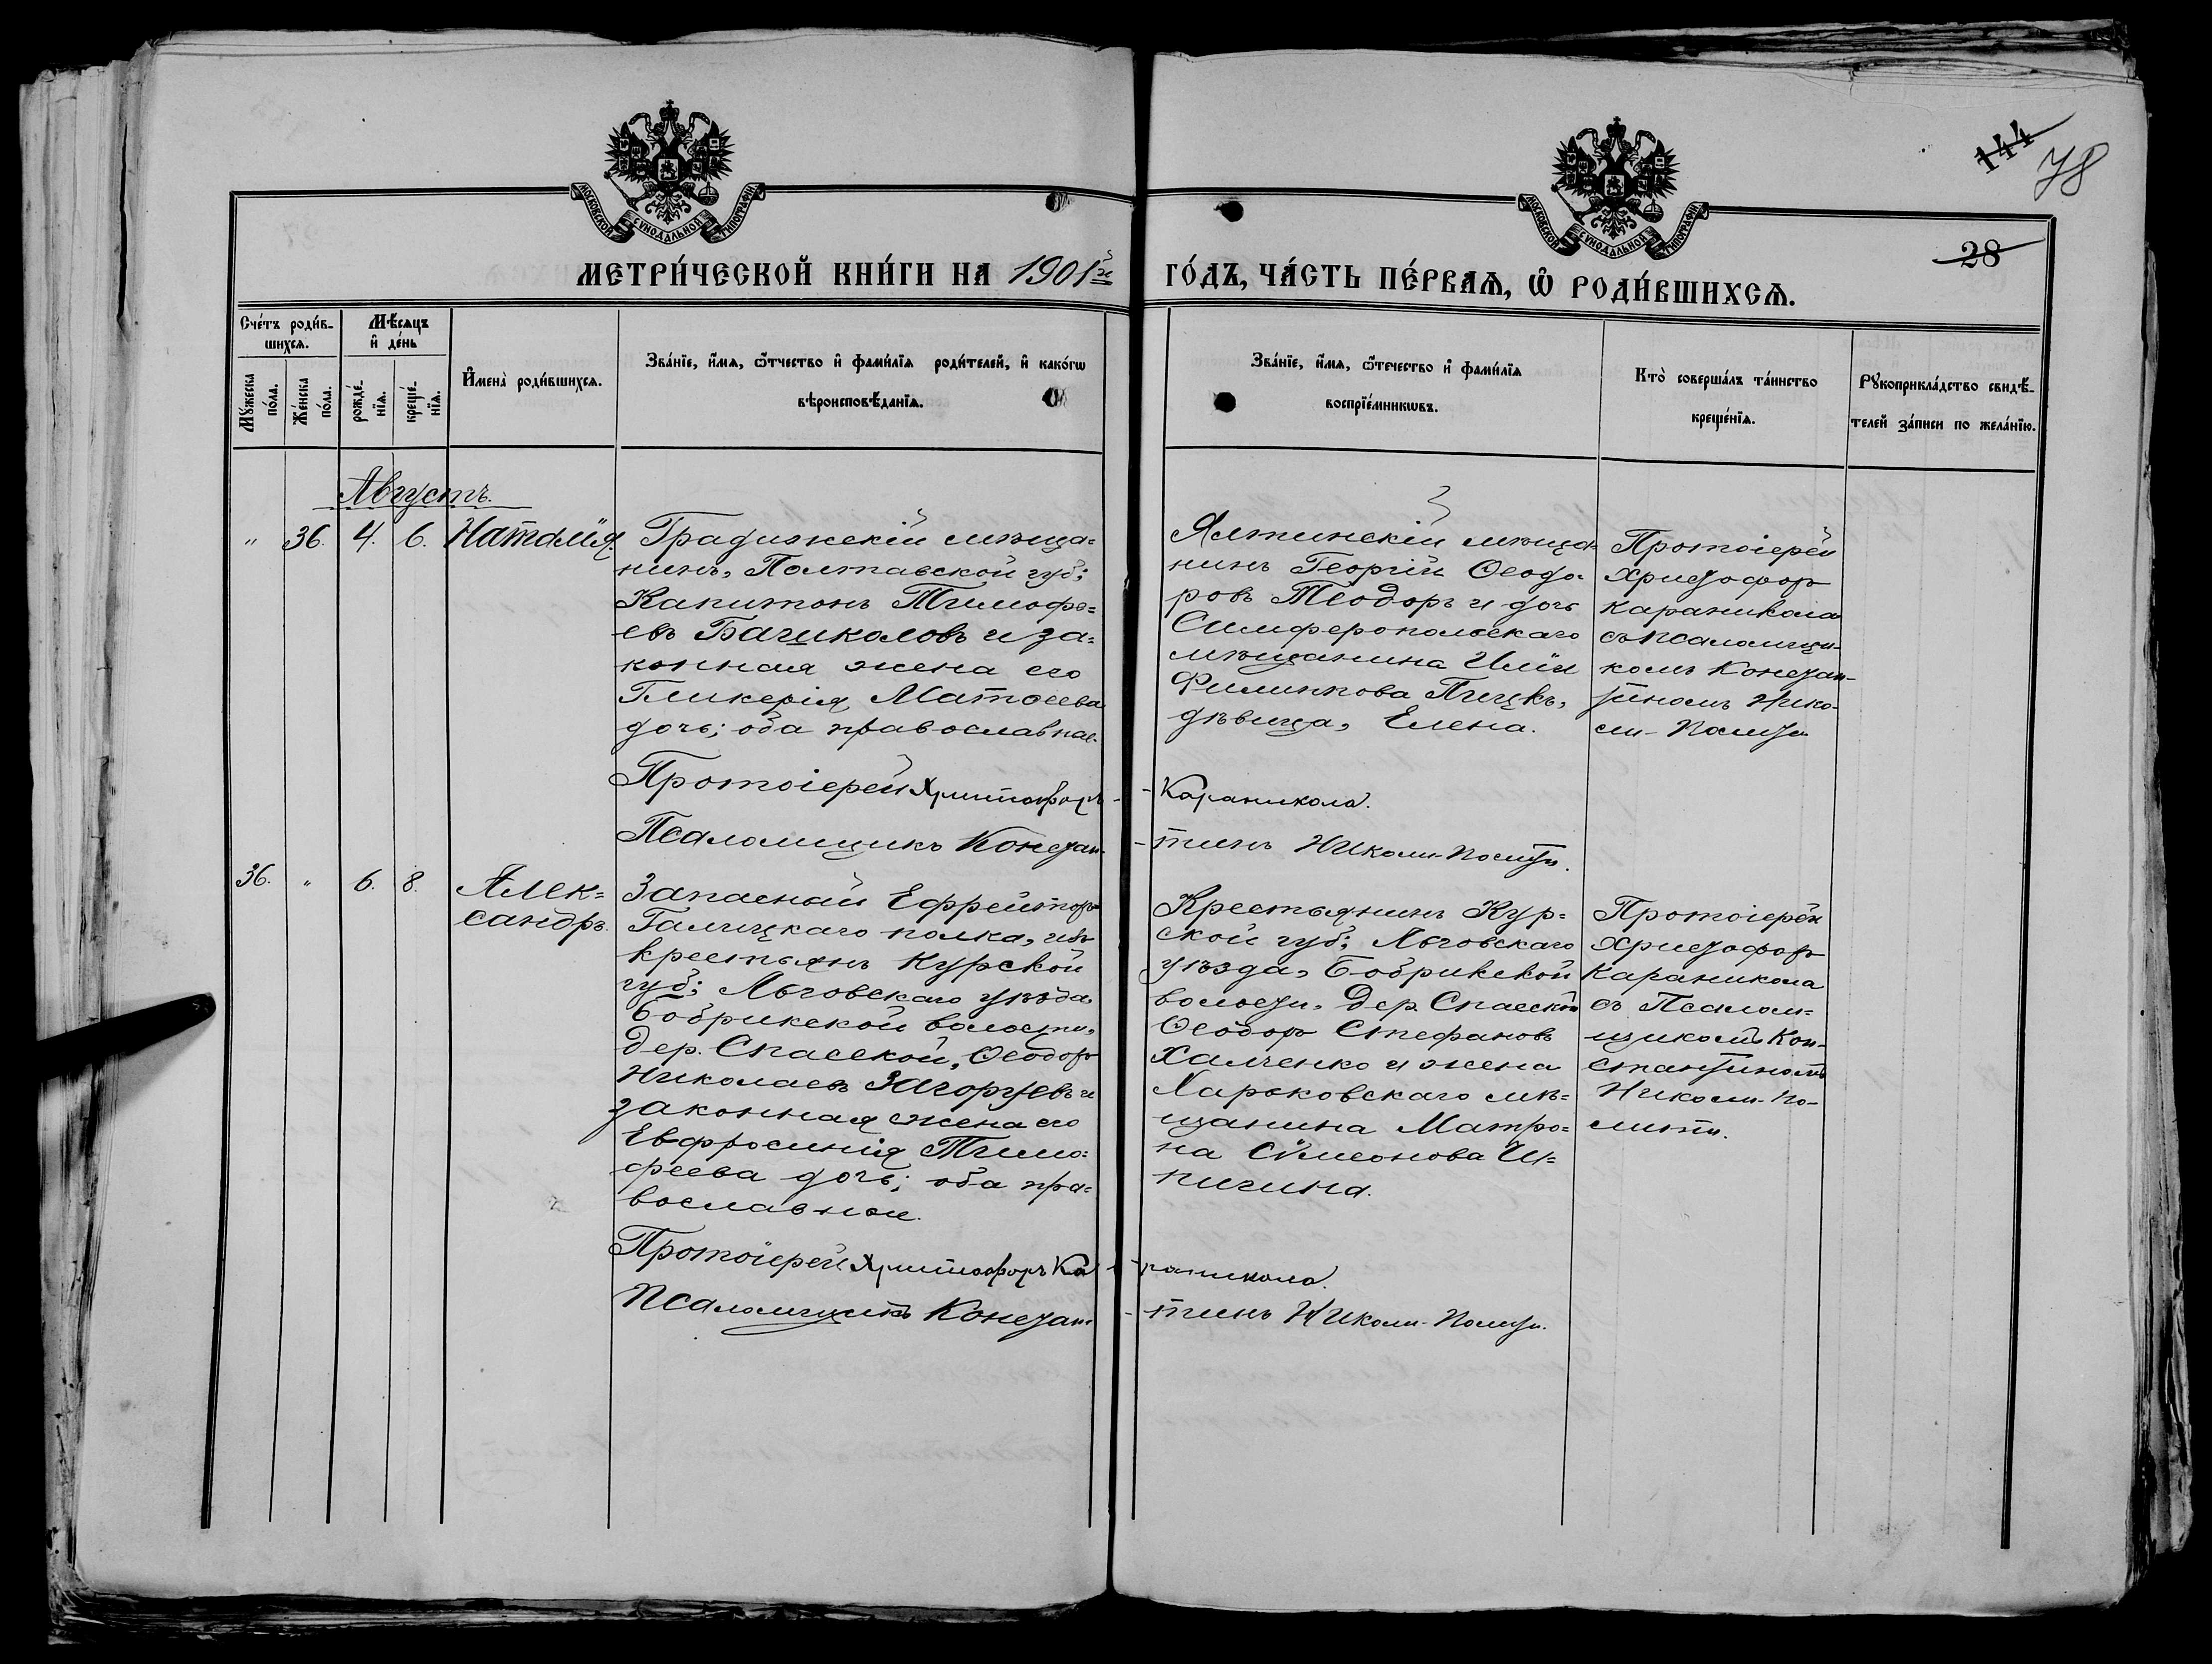 144
78
28
МОСКОВСКОЙ СѴНОДАЛЬНОЙ ТИПОГРАФІИ
МОСКОВСКОЙ СѴНОДАЛЬНОЙ ТИПОГРАФІИ
МЕТРИ́ЧЕСКОЙ КНИ́ГИ НА 1901й ГО́ДЪ, ЧА́СТЬ ПЕ́РВАѦ, Ѡ҆ РОДИ́ВШИХСѦ.
Сче́тъ роди́в-
шихсѧ.
Мꙋ́жеска
по́ла.
Же́нска
по́ла.
Мѣ́сѧцъ
и҆ де́нь
рожде́-
нїѧ.
креще́-
нїѧ.
И҆мена̀ роди́вшихсѧ.
Зва́нїе, и҆́мѧ, ѻ҆́тчество и҆ фами́лїѧ роди́телей, и҆ како́гѡ
вѣроисповѣ́данїѧ.
Зва́нїе, и҆́мѧ, ѻ҆́течество и҆ фами́лїѧ
воспрїе́мникѡвъ.
Кто̀ соверша́лъ та́инство
креще́нїѧ.
Рꙋкоприкла́дство свидѣ́-
телей за́писи по жела́нїю.
Августъ.
" 36. 4. 6. Наталія.
Градижскій мѣща=
нинъ, Полтавской губ;
Капитонъ Тимофе=
евъ Багиколовъ и за=
конная жена его
Гликерія Матѳеева
дочь; оба православные.
Ялтинскій мѣща-
нинъ Георгій Ѳеодо-
ровъ Теодоръ и дочь
Симферопольскаго
мѣщанина Иліи
Филиппова Пицкъ,
дѣвица, Елена.
Протоіерей
Христофоръ
Караникола
съ псаломщи-
комъ Констан-
тиномъ Нико-
ли-Полити
Протоіерей Христофоръ - - Караникола.
Псаломщикъ Констан- - тинъ Николи-Полити.
36. " 6. 8. Алек=
сандръ.
Запасный Ефрейторъ
Галицкаго полка, изъ
крестьянъ Курской
губ; Льговскаго уѣзда,
Бобрикской волости,
дер. Спасской, Ѳеодоръ
Николаевъ Загоруевъ и
законная жена его
Евфросинія Тимо=
феева дочь; оба пра=
вославные.
Крестьянинъ Кур=
ской губ; Льговскаго
уѣзда, Бобрикской
волости, дер. Спасской
Ѳеодоръ Стефановъ
Халченко и жена
Харьковскаго мѣ=
щанина Матро=
на Сѵмеонова И=
пигина.
Протоіерей
Христофоръ
Караникола
съ Псалом=
щикомъ Кон-
стантиномъ
Николи-По-
лити.
Протоіерей Христофоръ Ка - - раникола.
Псаломщикъ Констан- - тинъ Николи-Полити.